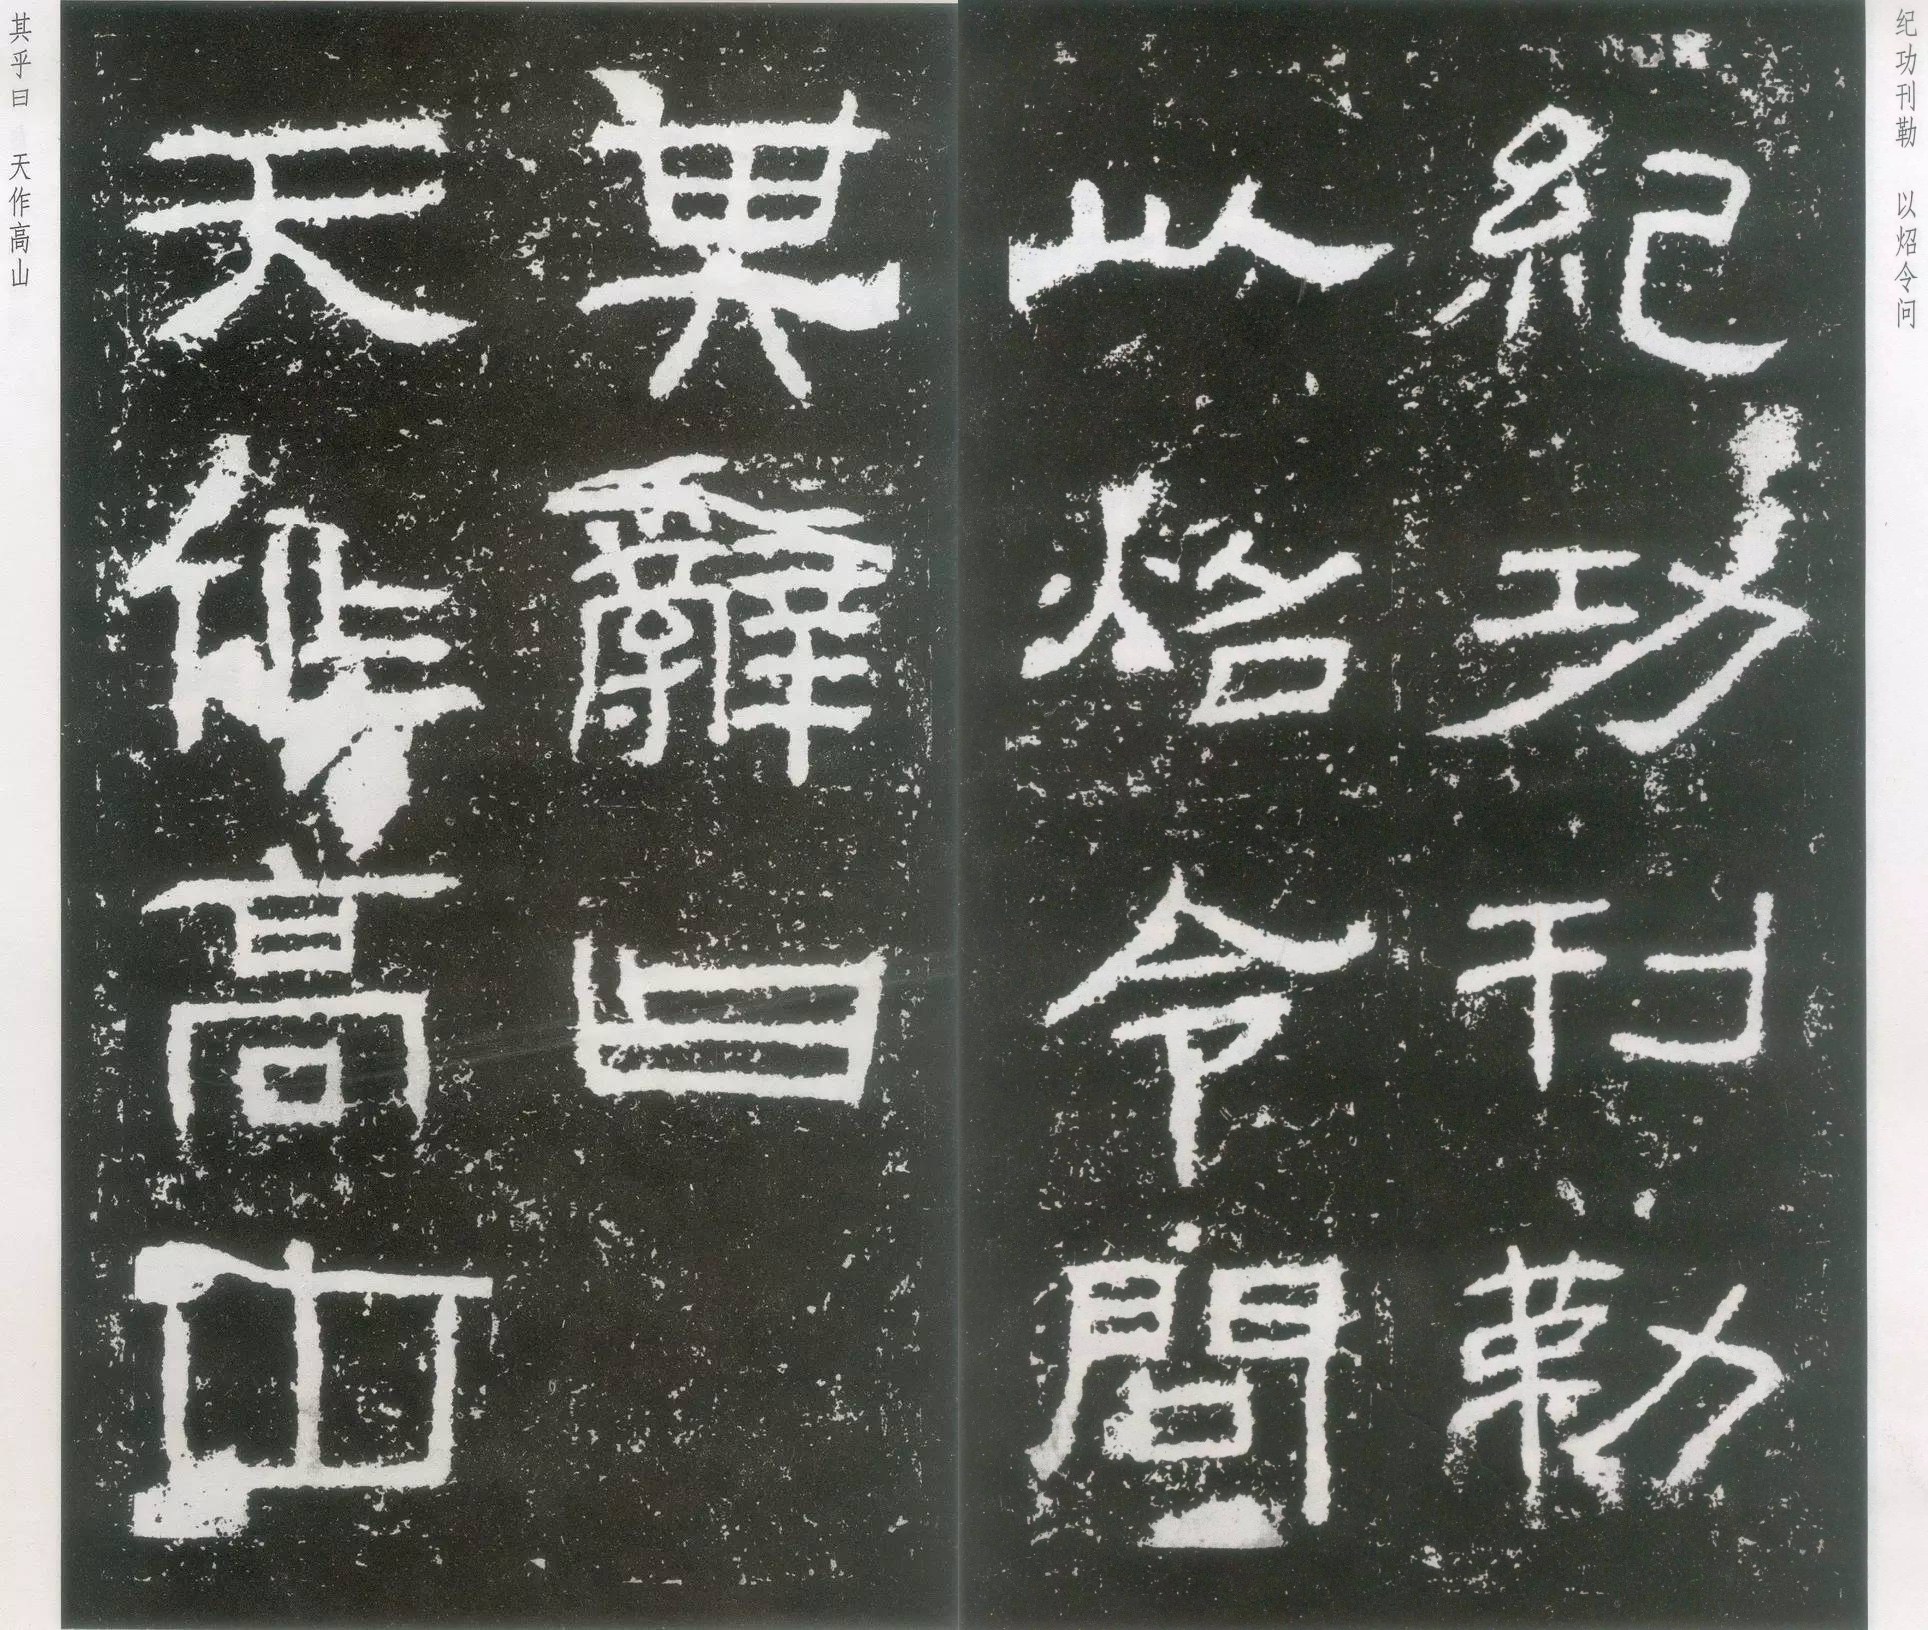 纪功刊勒 以炤令问
紀功刊勒
以炤令問
其辭曰
天作高山
其乎曰 天作高山